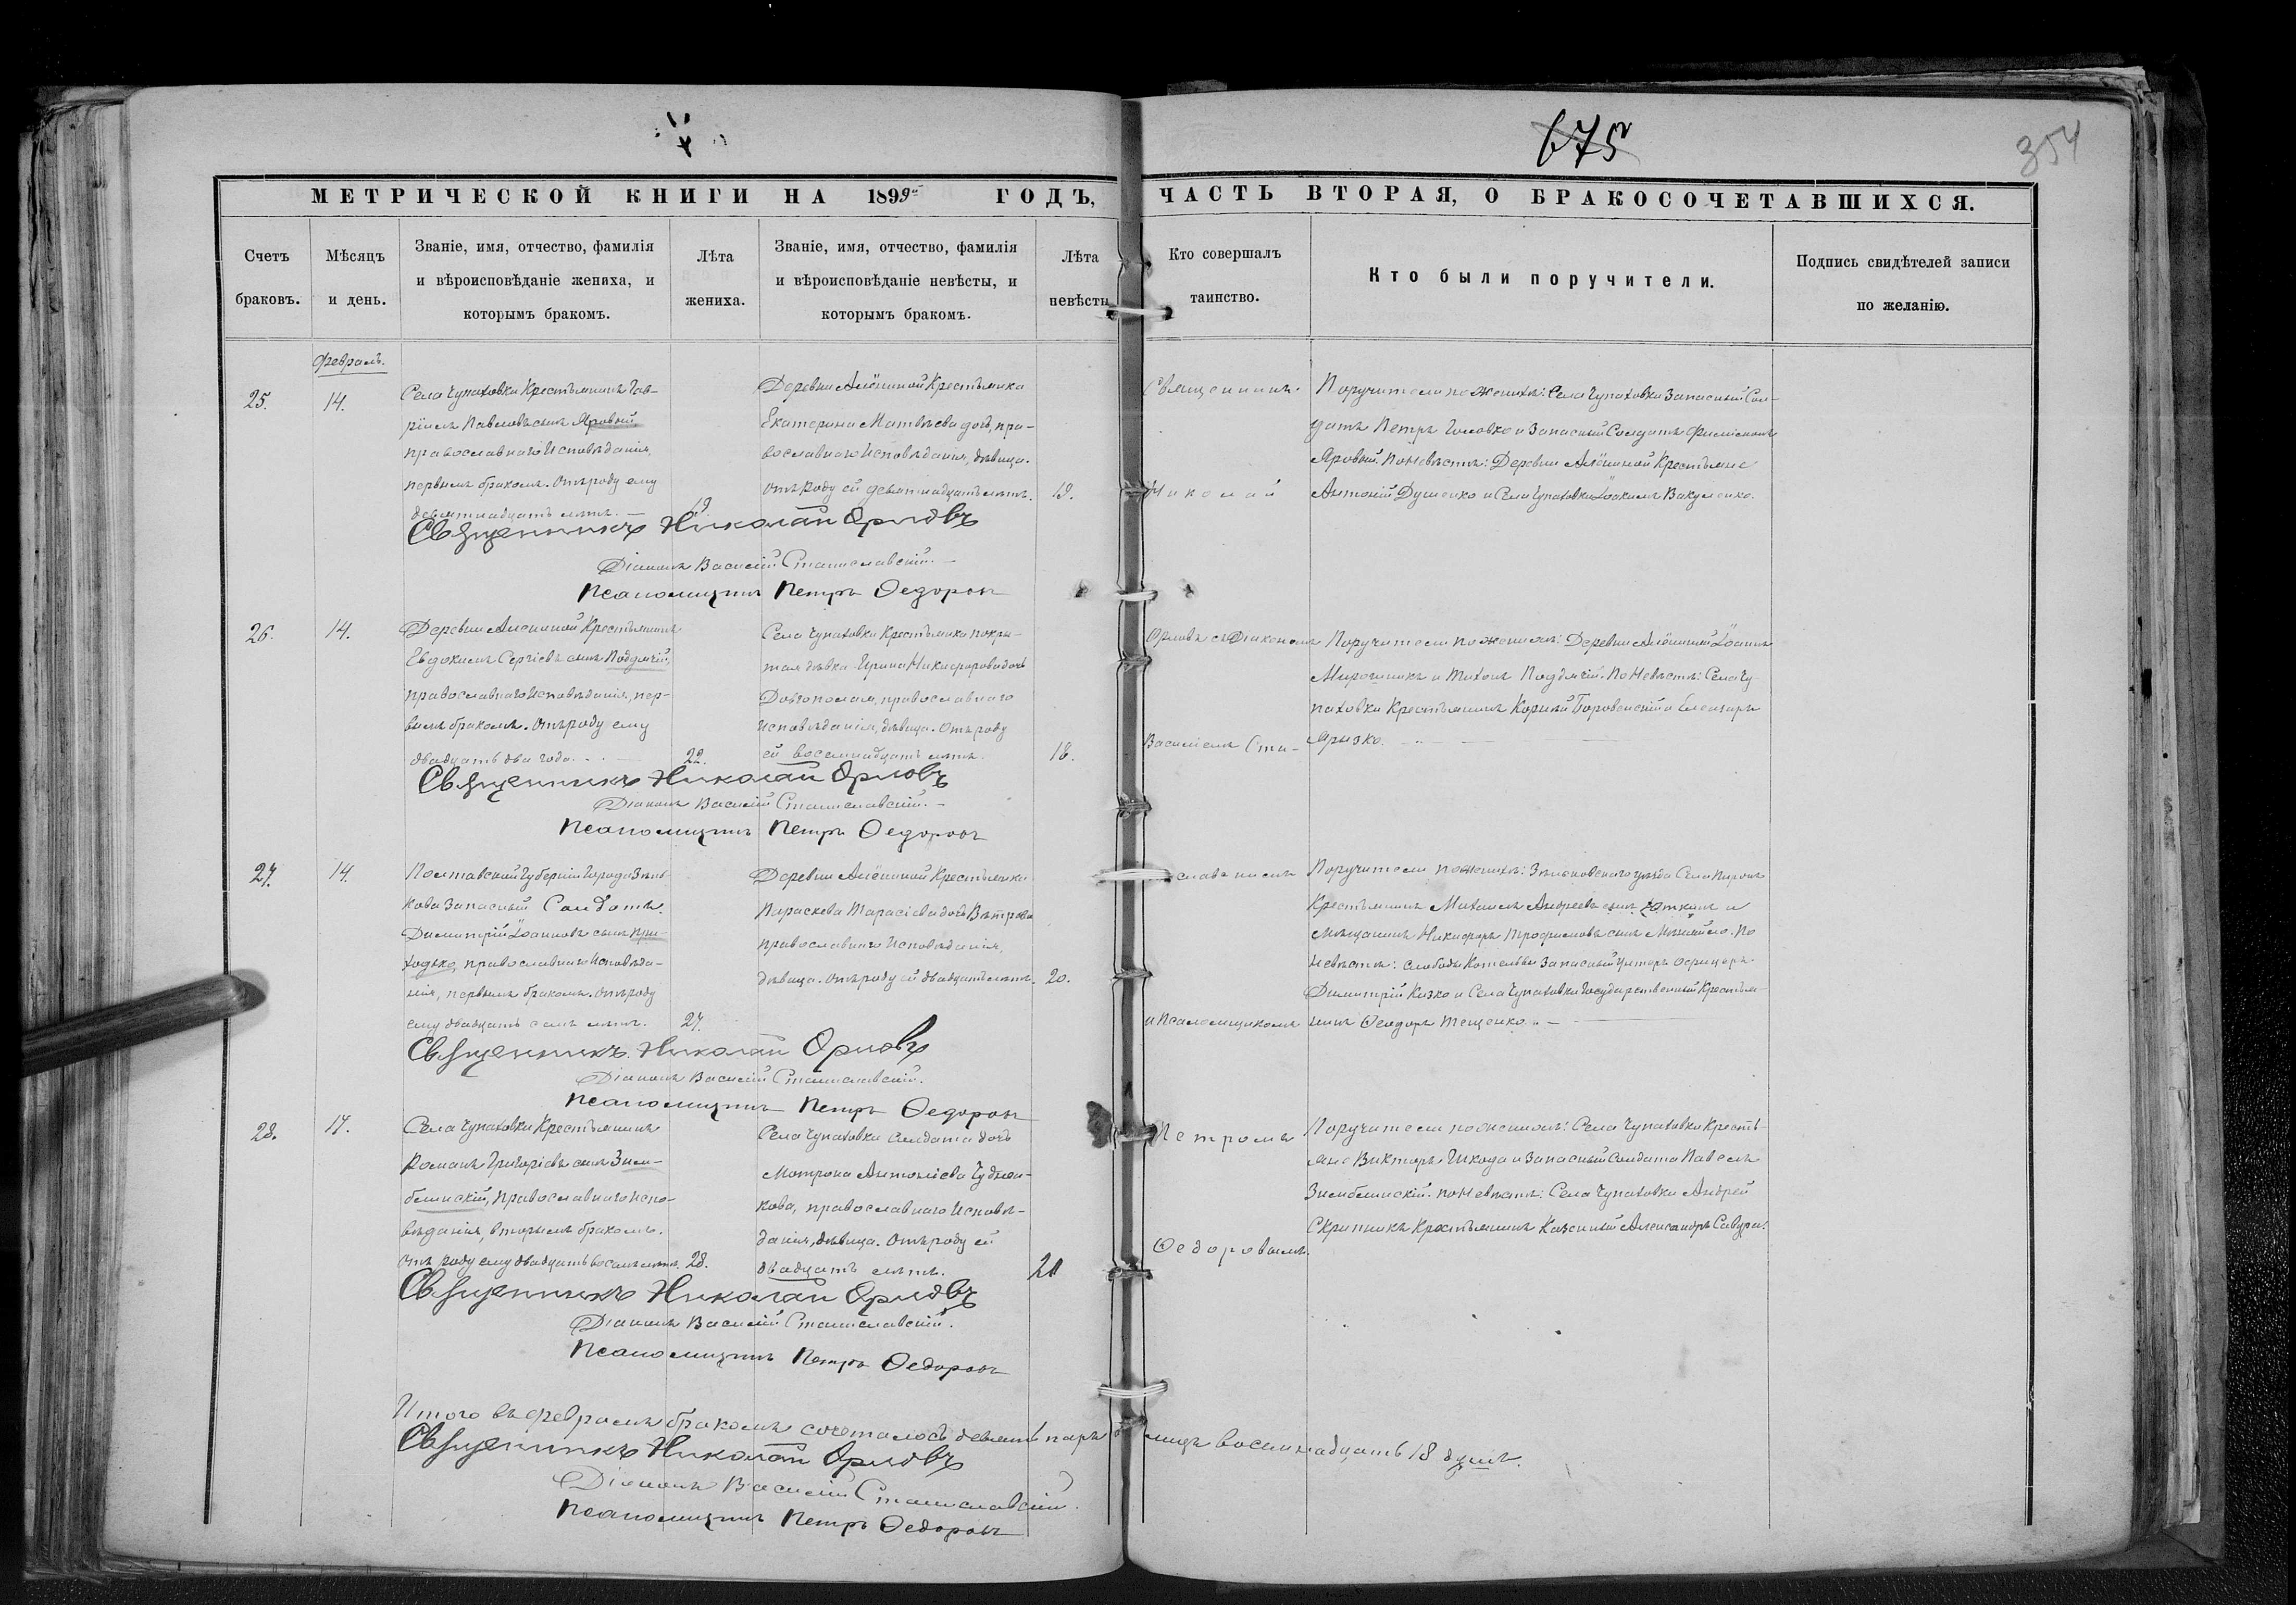 675
354
МЕТРИЧЕСКОЙ КНИГИ НА 1899й ГОДЪ, ЧАСТЬ ВТОРАЯ, О БРАКОСОЧЕТАВШИХСЯ.
Счетъ
браковъ.
Мѣсяцъ
и день.
Званіе, имя, отчество, фамилія
и вѣроисповѣданіе жениха, и
которымъ бракомъ.
Лѣта
жениха.
Званіе, имя, отчество, фамилія
и вѣроисповѣданіе невѣсты, и
которымъ бракомъ.
Лѣта
невѣсты
Кто совершалъ
таинство.
Кто были поручители.
Подпись свидѣтелей записи
по желанію.
Февраль.
25.
14.
Села Чупаховки Крестьянинъ Гав-
ріилъ Павловъ сынъ Яровый,
православнаго Исповѣданія,
первымъ бракомъ. Отъ роду ему
девятнадцать лѣтъ. —
19.
Деревни Алёшиной Крестьянка
Екатерина Матвѣева дочь, пра-
вославнаго Исповѣданія, дѣвица.
Отъ роду ей девятнадцать лѣтъ.
19.
Священникъ
Николай
Поручители по женихѣ: Села Чупаховки Запасный Сол-
датъ Петръ Головко и Запасный Солдатъ Филимонъ
Яровый. По Невѣстѣ: Деревни Алёшиной Крестьяне
Антоній Душенко и Села Чупаховки Іоакимъ Вакуленко.
Священникъ Николай Орловъ
Діаконъ Василій Станиславскій. —
Псаломщикъ Петръ Ѳедоровъ
26.
14.
Деревни Алешиной Крестьянинъ
Евдокимъ Сергіевъ сынъ Поддячій,
православнаго Исповѣданія, пер-
вымъ бракомъ. Отъ роду ему
двадцать два года. —
22.
Села Чупаховки Крестьянка покры-
тая дѣвка Ирина Никифорова дочь
Долгополая, православнаго
исповѣданія, дѣвица. Отъ роду
ей восемнадцать лѣтъ.
18.
Орловъ съ Діакономъ
Василіемъ Ста-
Поручители по женихѣ: Деревни Алёшиной Іоаннъ
Мирошникъ и Тихонъ Поддячій. По Невѣстѣ: Села Чу-
паховки Крестьянинъ Корній Боровенскій и Елеазаръ
Ярызко. —
Священникъ Николай Орловъ
Діаконъ Василій Станиславскій. —
Псаломщикъ Петръ Ѳедоровъ
27.
14.
Полтавской Губерніи Города Зінь-
кова Запасный Солдатъ
Димитрій Іоанновъ сынъ При-
ходько, православнаго Исповѣда-
нія, первымъ бракомъ. Отъ роду
ему двадцать семь лѣтъ.
27.
Деревни Алёшиной Крестьянка
Параскева Тарасіева дочь Вѣтрова
православнаго Исповѣданія,
дѣвица. Отъ роду ей двадцать лѣтъ.
20.
славскимъ
и Псаломщикомъ
Поручители по женихѣ: Зѣньковскаго уѣзда Села
Крестьянинъ Михаилъ Андреевъ сынъ и
мѣщанинъ Никифоръ Трофимовъ сынъ По
Невѣстѣ: слободы Котельвы Запасный Унтеръ Офицеръ
Димитрій Кизко и Села Чупаховки Государственный Крестья-
нинъ Ѳеодоръ Тещенко. —
Священникъ Николай Орловъ
Діаконъ Василій Станиславскій.
Псаломщикъ Петръ Ѳедоровъ
28.
17.
Села Чупаховки Крестьянинъ
Романъ Григоріевъ сынъ Зим-
бѣлинскій, православнаго испо-
вѣданія, вторымъ бракомъ.
Отъ роду ему двадцать восемь лѣтъ.
28.
Села Чупаховки солдата дочь
Мотрона Антоніева Чудно-
кова, православнаго Исповѣ-
данія, дѣвица. Отъ роду ей
двадцать лѣтъ.
20
Петромъ
Ѳедоровымъ.
Поручители по женихѣ: Села Чупаховки Кресть-
яне Викторъ Шкода и Запасный Солдатъ Павелъ
Зимбелинскій. по Невѣстѣ: Села Чупаховки Андрей
Скрипникъ Крестьянинъ Казенный Александръ Савура.
Священникъ Николай Орловъ
Діаконъ Василій Станиславскій.
Псаломщикъ Петръ Ѳедоровъ
Итого въ февралѣ бракомъ сочеталось девять паръ лицъ восемнадцать 18 душъ.
Священникъ Николай Орловъ
Діаконъ Василій Станиславскій.
Псаломщикъ Петръ Ѳедоровъ